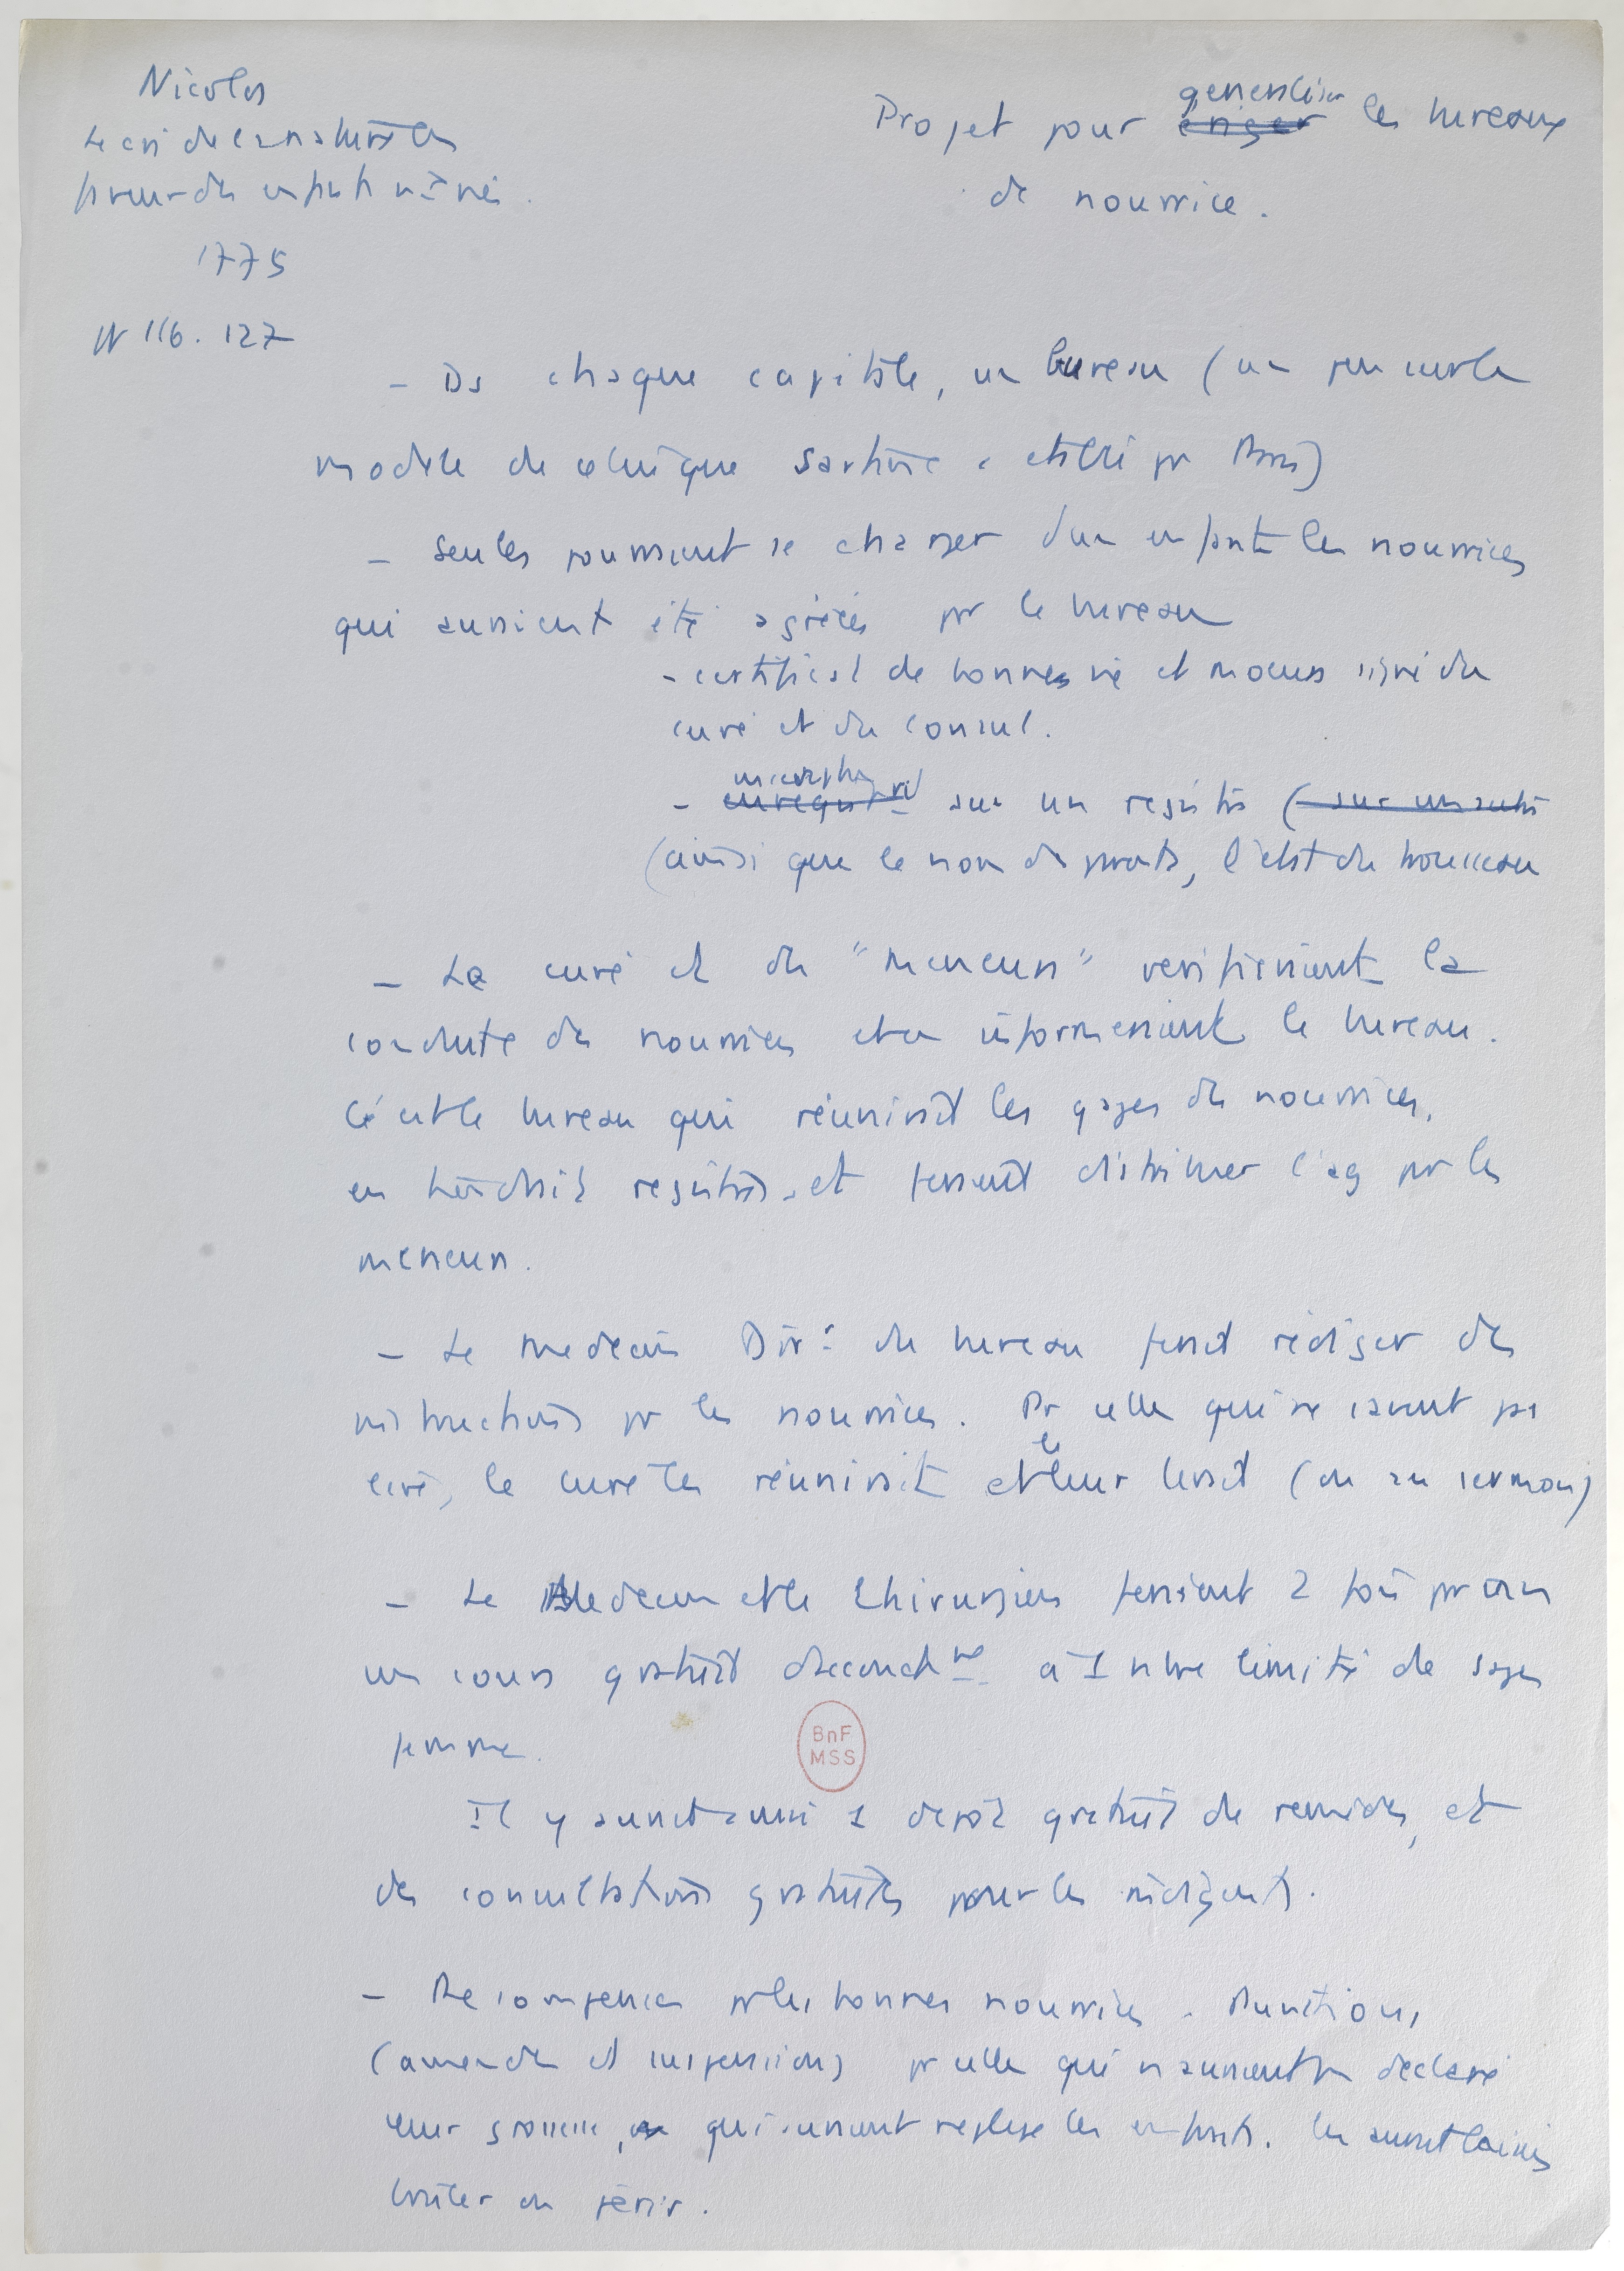 Nicolas
Le cri de la nature en
faveur des enfants nvx nés.
1775
pp 116. 127
Projet pour generaliser les bureaux
de nourrice.
- Ds chaque capitale, un bureau (un peu sur le
modèle de celui que Sartine a établi pr Paris)
- Seules pourraient se charger d'un enfant les nourrices
qui auraient été agréées par le bureau
- certificat de bonnes vie et moeurs signé du
curé et du consul.
- sur un registre (sur un autre
(ainsi que le nom des parents, l'état du trousseau
- Le curé et des "meneurs" verifieraient la
conduite des nourrices et en informeraient le bureau.
C'est le bureau qui réunirait les gages des nourrices,
en tiendrait registre, et ferait distribuer l'arg par les
meneurs.
- Le medecin Dirr du bureau ferait rédiger des
instructions pr les nourrices. Pr celles qui ne savent pas
lire, le curé les réunirait et les leur lirait (ou au sermon)
- Le Medecin et le Chirurgien feraient 2 fois par an
un cours gratuit d'accouchmt à 1 nbre limité de sages
femmes.
Il y aurait aussi 1 dépôt gratuit de remèdes, et
des consultations gratuites pour les indigents.
- Recompenses pr les bonnes nourrices. Punitions
(amendes et suspensions) pr celles qui n'auraient pas déclaré
leur grossesse, qui auraient negligé les enfants. les auraient laissés
bruler ou périr.
BnF
MSS